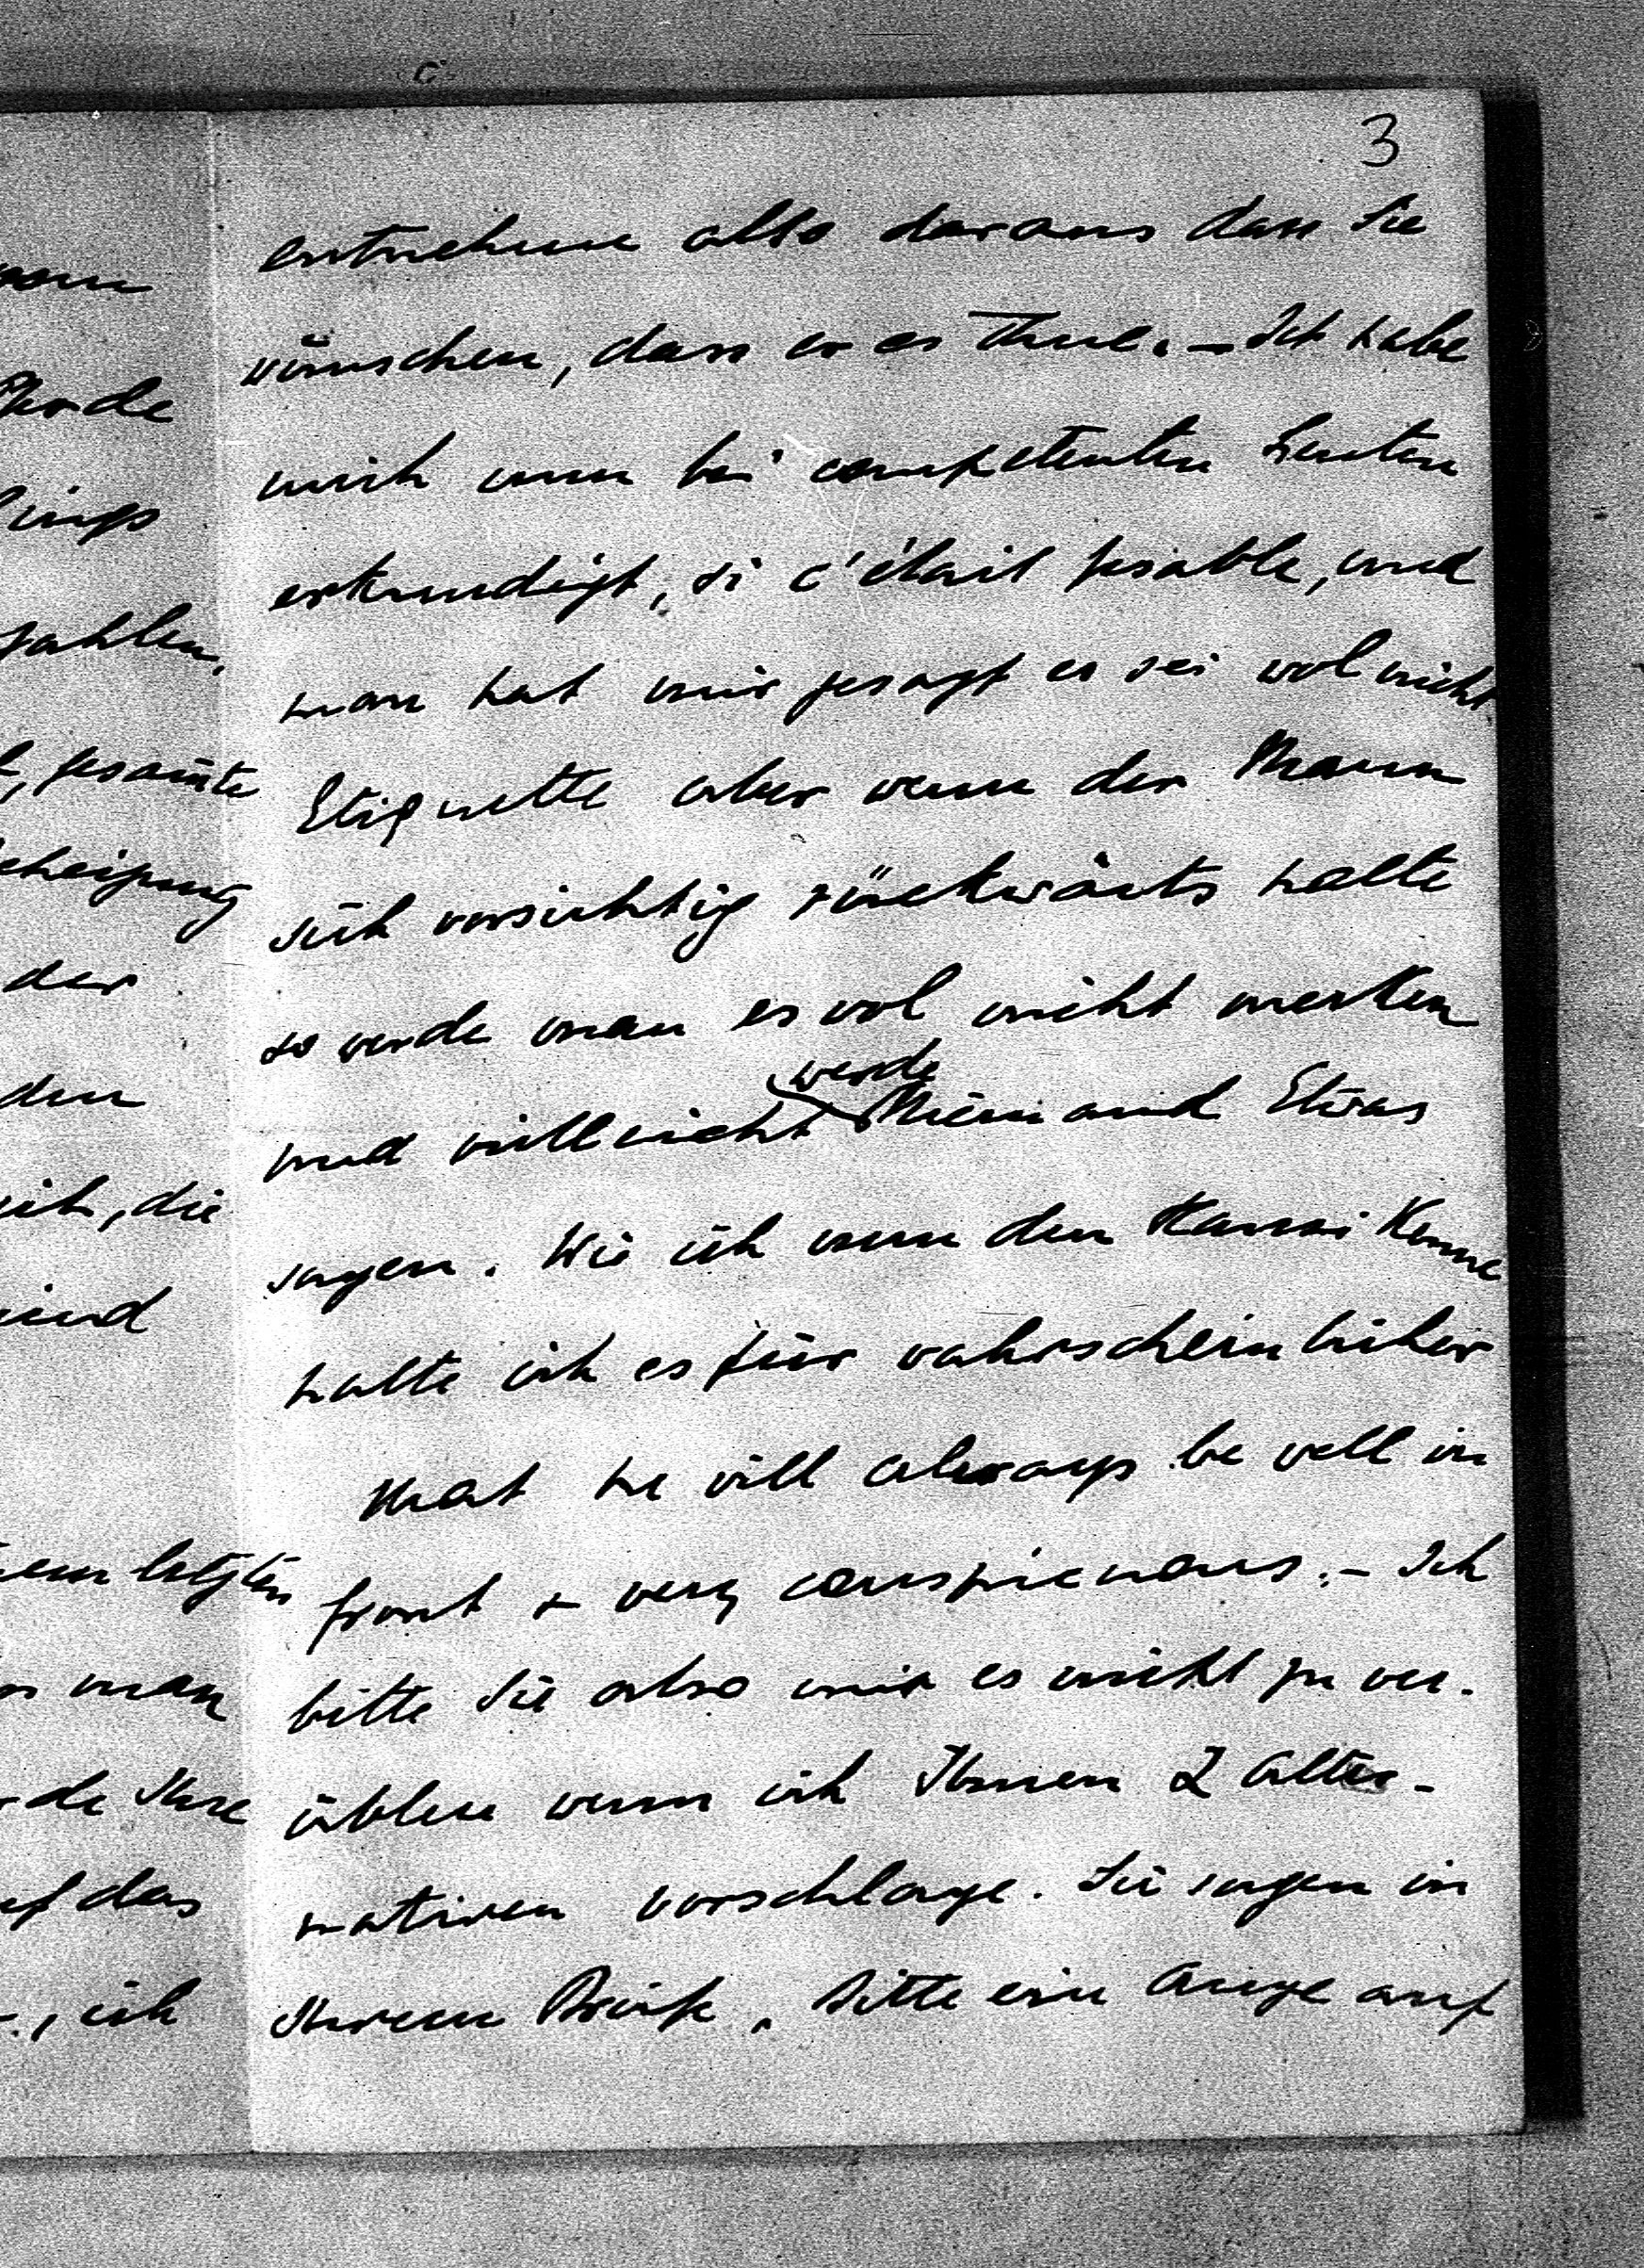 3
entnehme also daraus dass Sie
wünschen, dass er es Thue. – Ich habe
mich nun bei competenten Leuten
erkundigt, si c'était fesable, und
man hat mir gesagt es sei wol nicht
Etiquette aber wenn der Mann
sich vorsichtig rückwärts halte
so werde man es wol nicht merken
werde
und villeicht Niemand Etwas
sagen. Wie ich nun den Hansi Kenne
halte ich es für wahrscheinlicher
that he will always be well in
front & very conspicuous. – Ich
bitte Sie also mir es nicht zu ver-
üblen wenn ich Ihnen 2 Alter-
nativen vorschlage. Sie sagen in
Ihrem Briefe. Bitte ein Auge auf
Pferde
zahlen,
gesam̄te
der
den
die
letzten
man
Ihre
das
ich